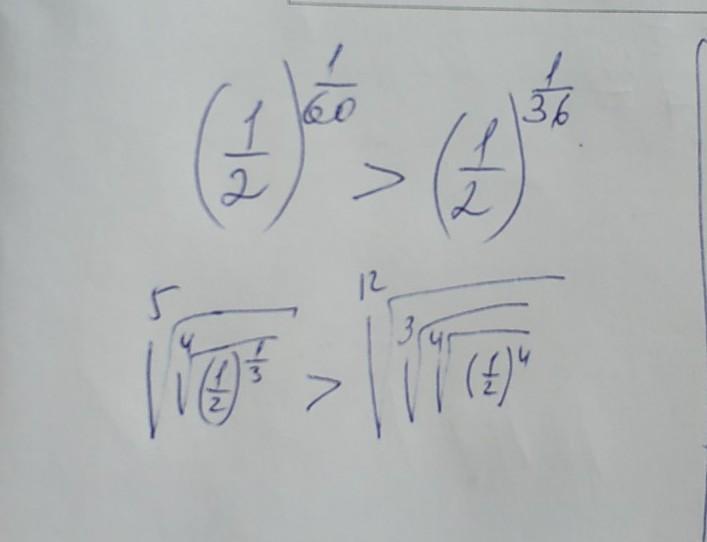 (1/2)^(1/60) > (1/2)^(1/36)
⁵√(⁴√((1/2)^(1/3))) > ¹²√(³√(⁴√((1/2)^4)))